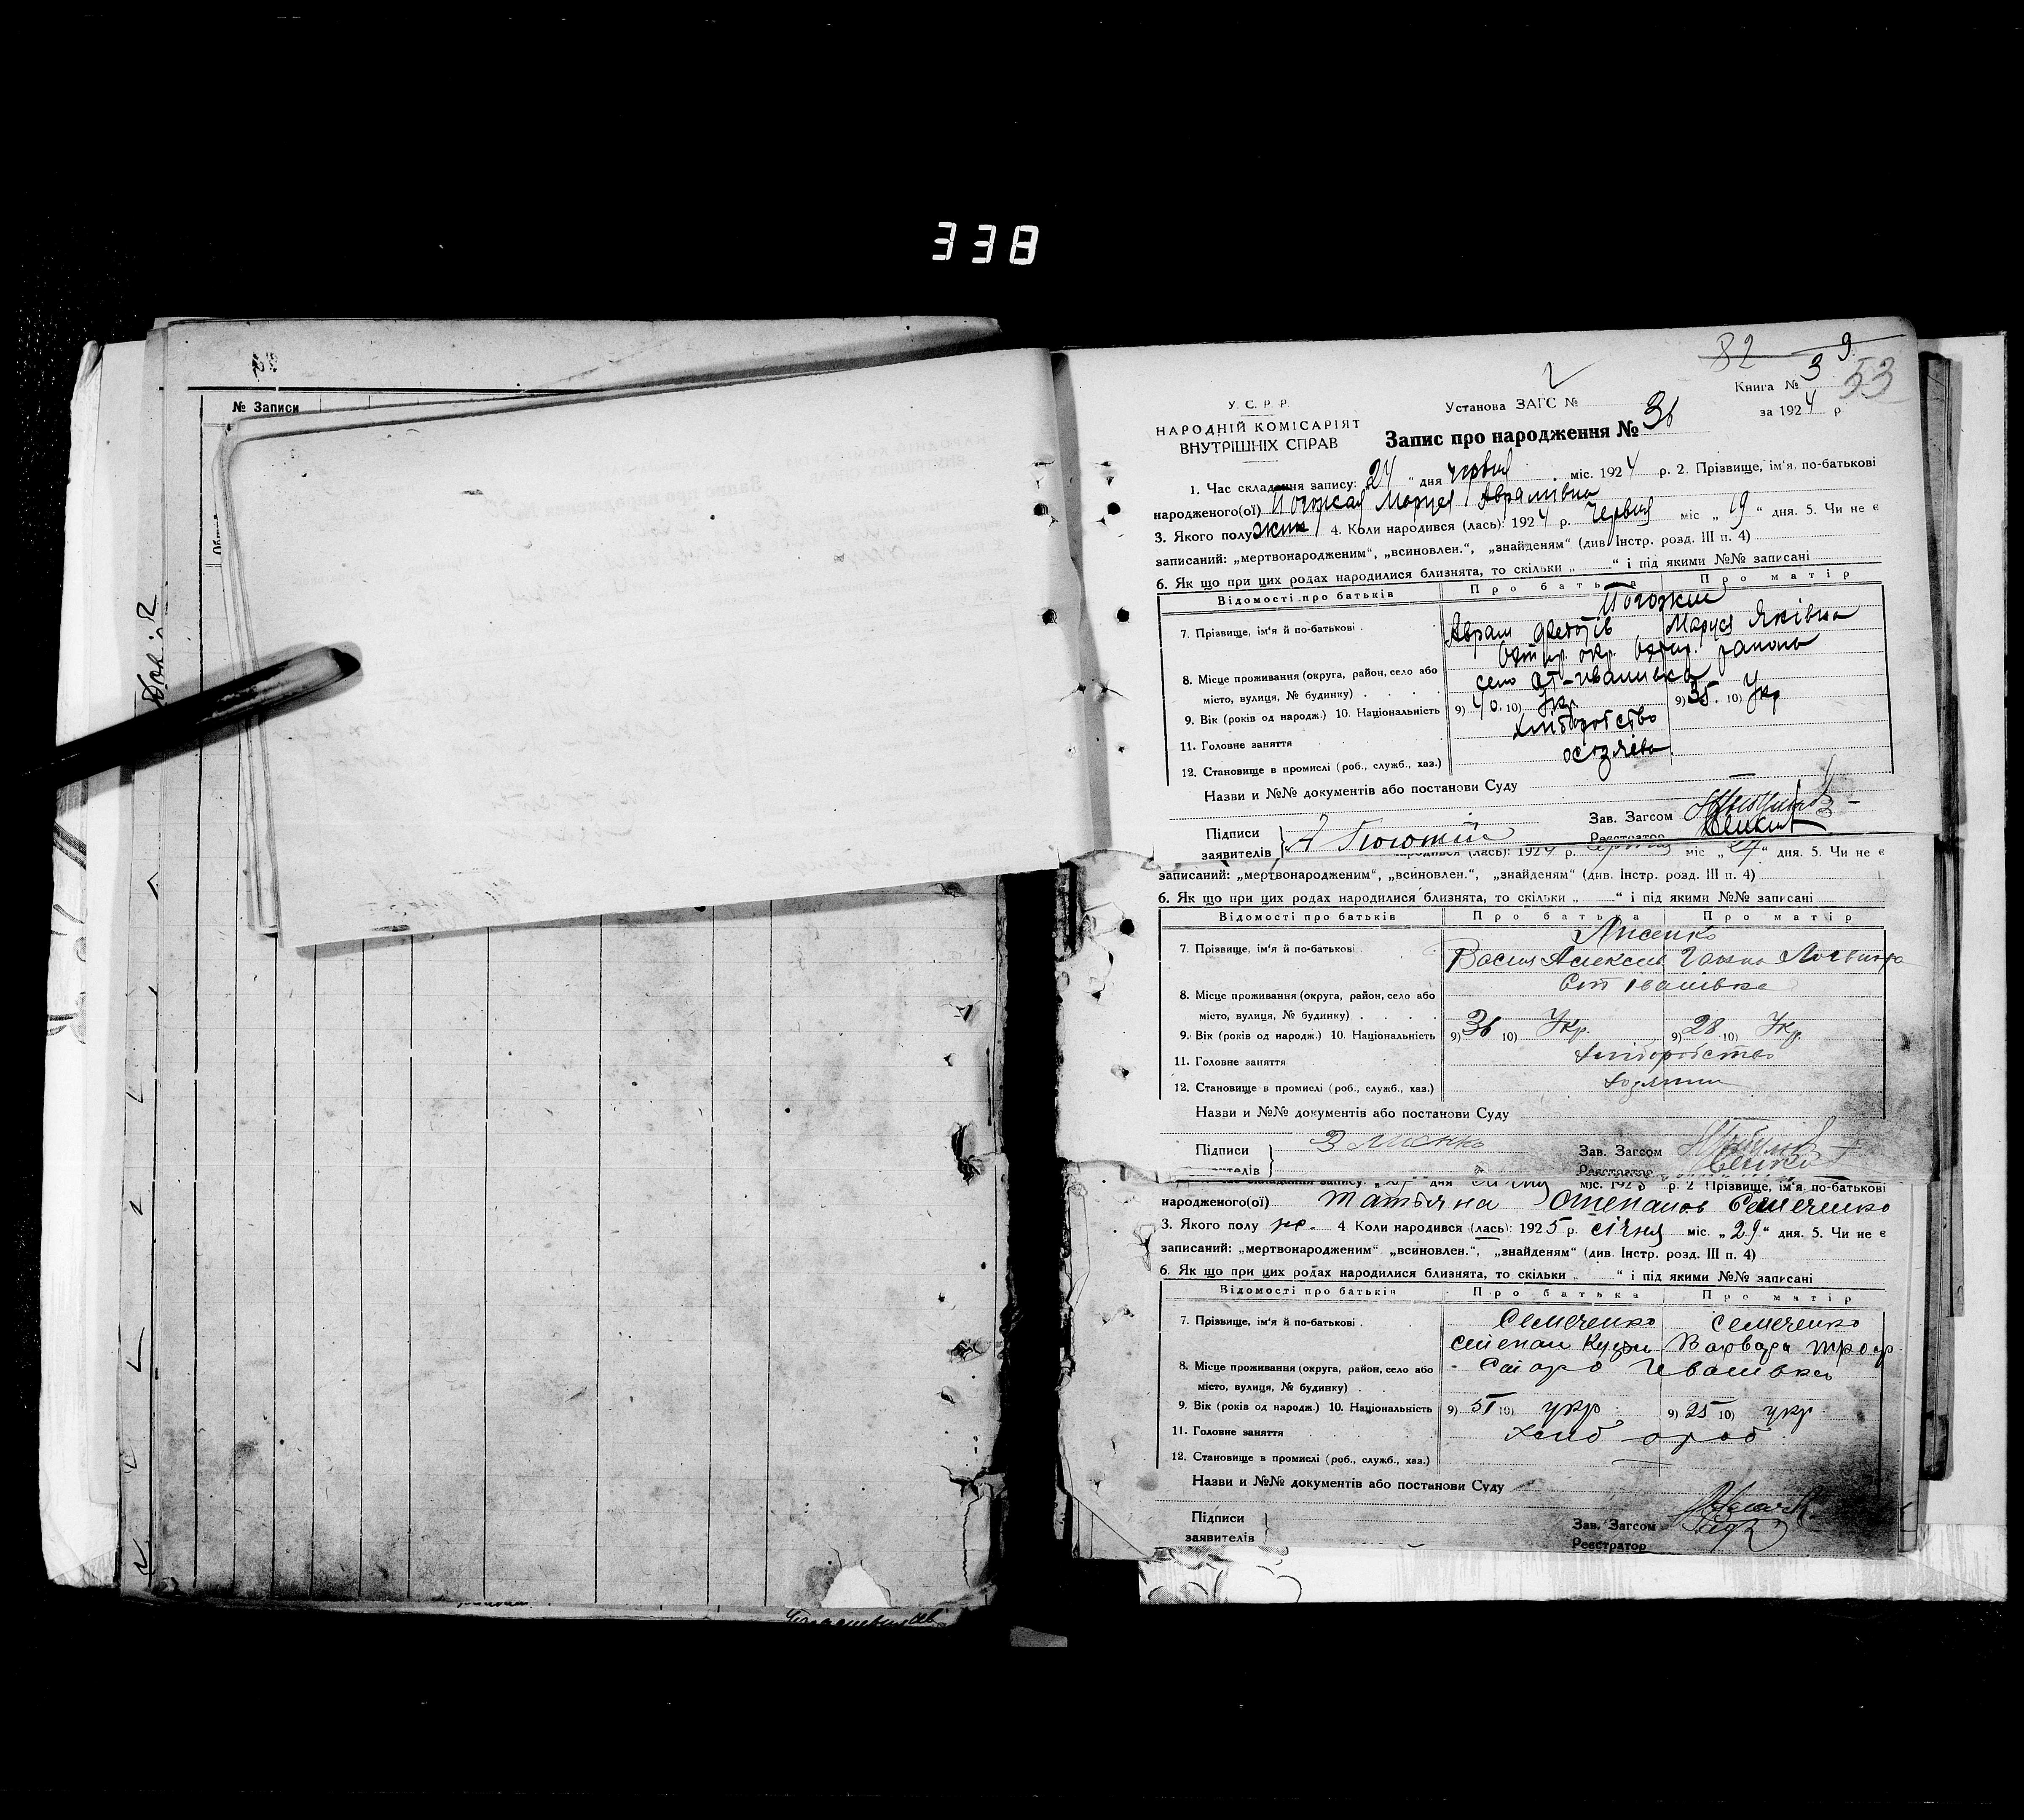 338
№ Записи
82
9
53
Книга № 3
за 1924 р
У. С. Р. Р.
НАРОДНІЙ КОМІСАРІЯТ
ВНУТРІШНІХ СПРАВ
Установа ЗАГС №
Запис про народження № 36
1. Час складання запису: „24“ дня червня міс. 1924 р. 2. Прізвище, ім'я, по-батькові
народженого(ої) Маруся Аврамівна
3. Якого полу жін 4. Коли народився (лась): 1924 р. Червня міс „19“ дня. 5. Чи не є
записаний: „мертвонародженим“, „всиновлен.“, „знайденям“ (див. Інстр. розд. III п. 4)
6. Як що при цих родах народилися близнята, то скільки „ “ і під якими №№ записані
Відомості про батьків Про батька Про матір
7. Прізвище, ім'я й по-батькові
Аврам Федотів Маруся Яківна
8. Місце проживання (округа, район, село або Охтир. окр. Охтир. району
місто, вулиця, № будинку) село Ст-Иванивка
9. Вік (років од народж.) 10. Національність 9) 40. 10) Укр. 9) 35. 10) Укр
11. Головне заняття хліборобство
12. Становище в промислі (роб., служб., хаз.)
Назви и №№ документів або постанови Суду
Підписи
заявителів
Зав. Загсом
Реєстратор
народився (лась): 1924 р. червня міс „24“ дня. 5. Чи не є
записаний: „мертвонародженим“, „всиновлен.“, „знайденям“ (див. Інстр. розд. III п. 4)
6. Як що при цих родах народилися близнята, то скільки „ “ і під якими №№ записані
Відомості про батьків Про батька Про матір
7. Прізвище, ім'я й по-батькові Лисенко
Ганна
8. Місце проживання (округа, район, село або Ст Іванівка
місто, вулиця, № будинку)
9. Вік (років од народж.) 10. Національність 9) 36 10) Укр. 9) 28 10) Укр.
11. Головне заняття хліборобство
12. Становище в промислі (роб., служб., хаз.)
Назви и №№ документів або постанови Суду
Підписи
Лисенко
Зав. Загсом
Реєстратор
міс. 1925 р. 2 Прізвище, ім'я, по-батькові
народженого(ої) Татьяна Степанов Семеченко
3. Якого полу ж. 4 Коли народився (лась): 1925 р. січня міс. „29“ дня. 5. Чи не є
записаний: „мертвонародженим“ „всиновлен.“, „знайденям“ (див. Інстр. розд. III п. 4)
6. Як що при цих родах народилися близнята, то скільки „ “ і під якими №№ записані
Відомості про батьків Про батька Про матір
7. Прізвище, ім'я й по-батькові Семеченко Семеченко
Степан Варвара
8. Місце проживання (округа, район, село або Старо Иванівка
місто, вулиця, № будинку)
9. Вік (років од народж.) 10. Національність 9) 51 10) укр 9) 25 10) укр
11. Головне заняття
12. Становище в промислі (роб., служб., хаз.)
Назви и №№ документів або постанови Суду
Підписи
заявителів
Зав. Загсом
Реєстратор